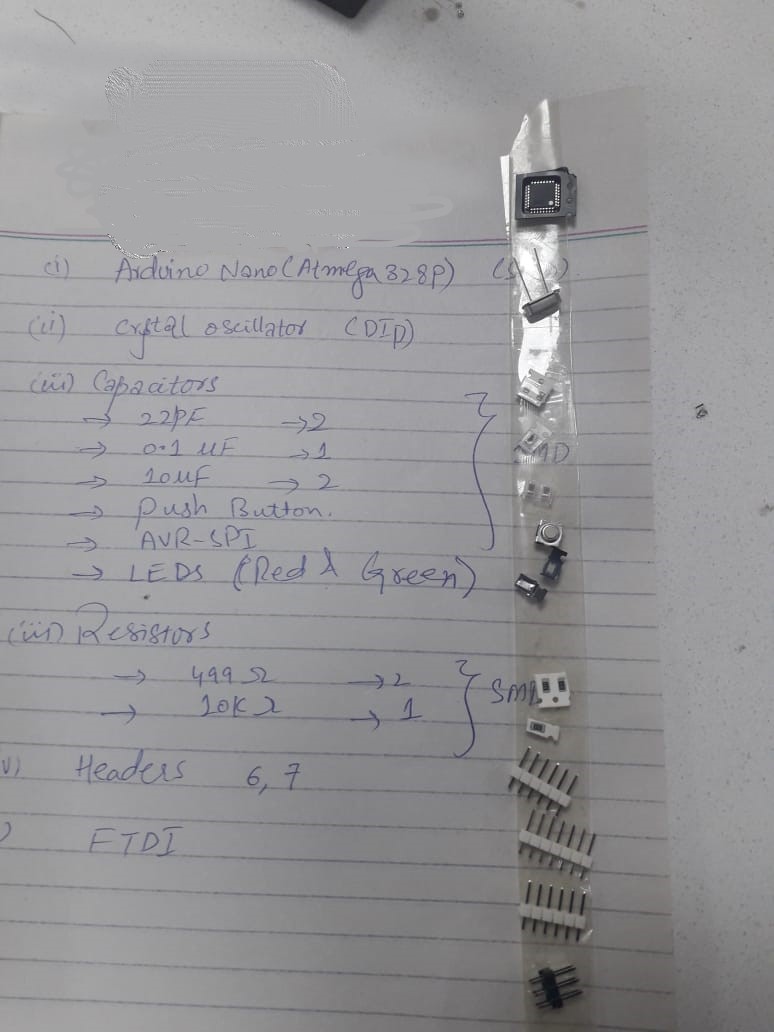 (i) Arduino Nano (Atmega 328P)
(ii) Crystal oscillator (DIP)
(iii) Capacitors
→ 22PF →2
→ 0.1 uF →1
→ 10uF → 2
→ Push Button.
→ AVR-SPI
→ LEDS (Red & Green)
(iii) Resistors
→ 499 Ω →2
→ 10K Ω → 1
SMD
V) Headers 6, 7
) FTDI